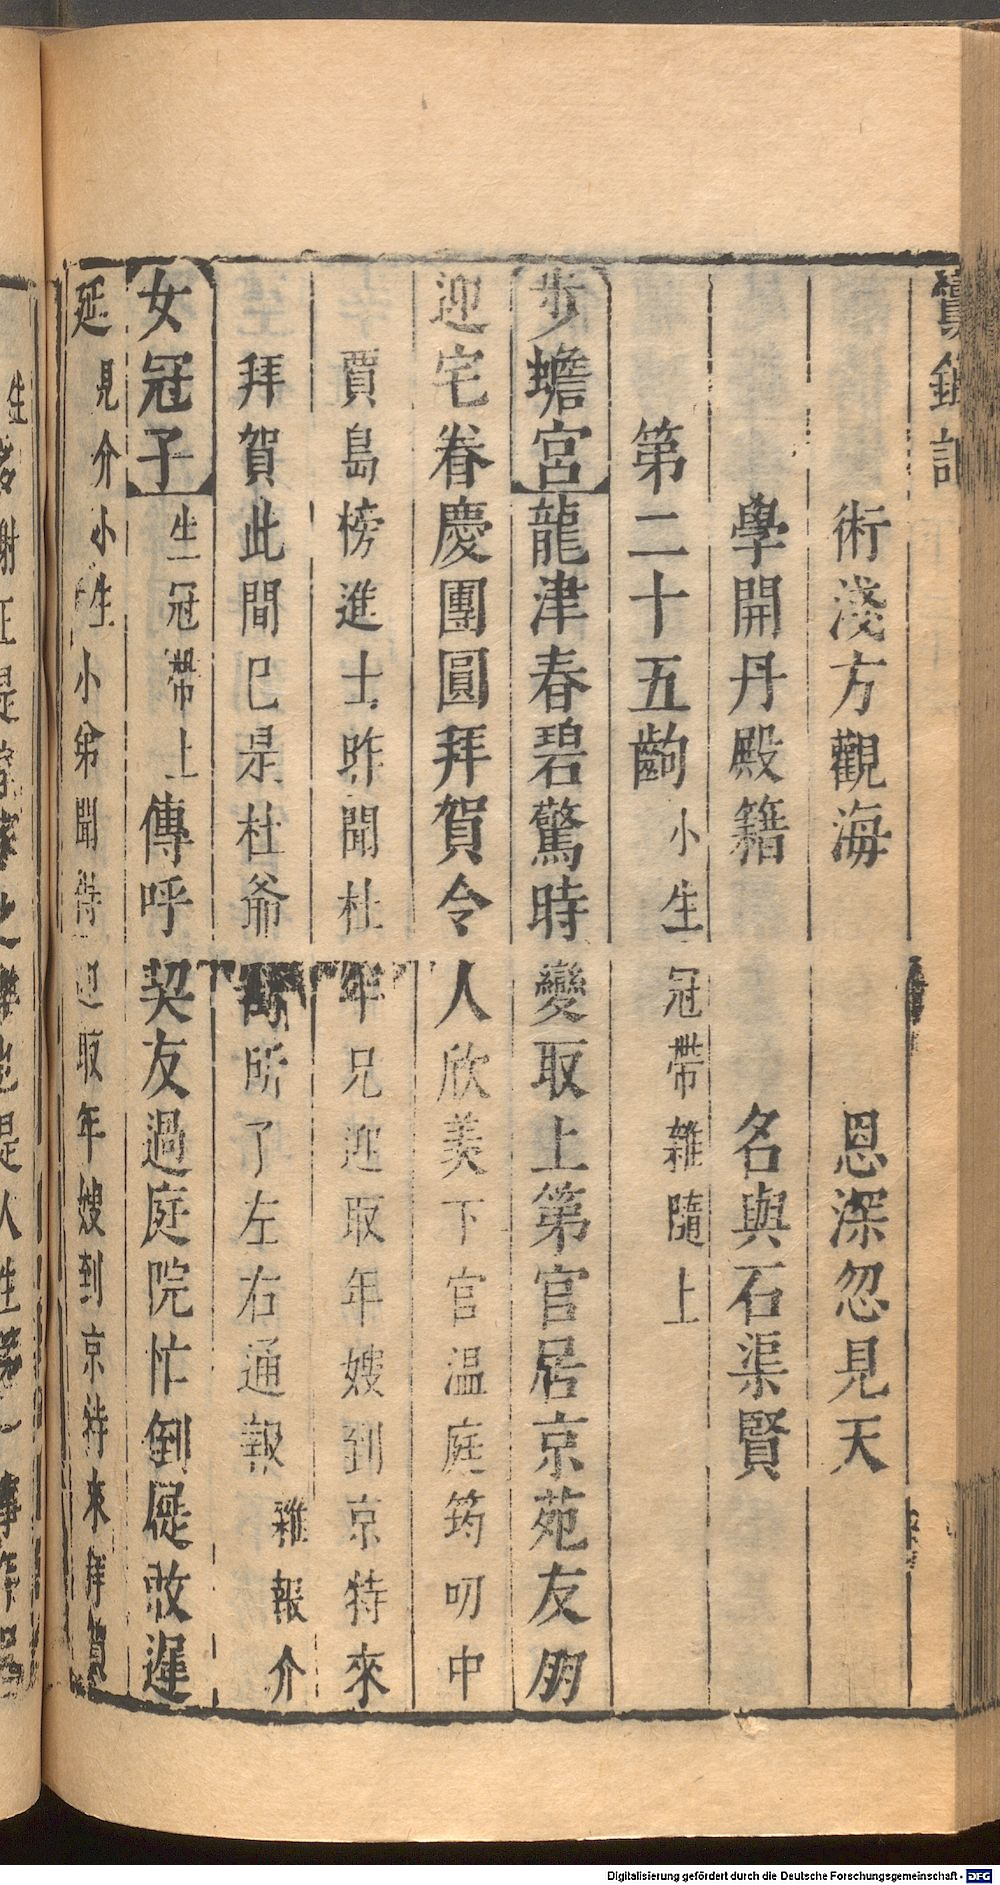 鸞鎞記
術淺方觀海　恩深忽見天
學開丹殿籍　名與石渠賢
第二十五齣 小生冠帶雜隨上
步蟾宮龍津春碧驚時變取上第官居京苑友朋
迎宅眷慶團圓拜賀令人欣羡下官温庭筠叨中
賈島榜進士昨聞杜年兄迎取年嫂到京特來
拜賀此間已是杜爺寓所了左右通報 雜報介
女冠子 生冠帶上 傳呼契友過庭院忙倒屣敢遲
延 見介小生 小弟聞得迎取年嫂到京特來拜賀
Digitalisierung gefördert durch die Deutsche Forschungsgemeinschaft - DFG